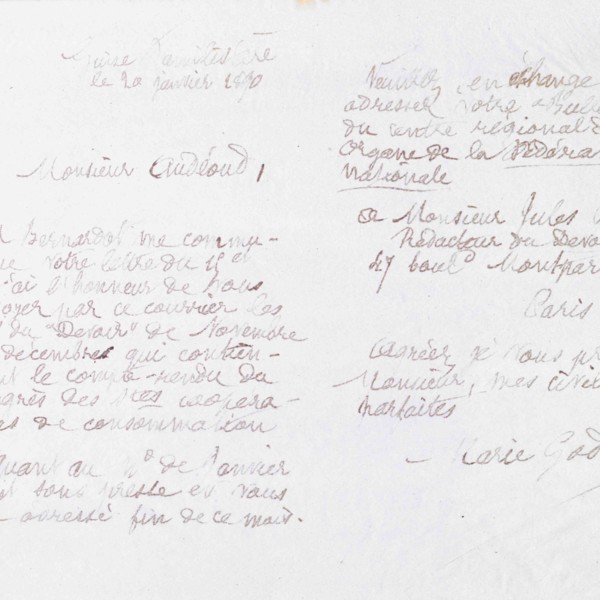 Guise Familistère
le 20 janvier 1890
Monsieur Audéoud,
Bernardot me commu-
que votre lettre du 11 et
j'ai l'honneur de vous
oyer par ce courrier les
du "Devoir" de Novembre
décembre qui contien-
t le compte-rendu du
grès des Stés coopéra-
es de consommation
Quant au No de Janvier
sous presse et vous
adressé fin de ce mois.
Veuillez, en échange
adresser votre Bulle
du centre régional
organe de la Fédéra
nationale
a Monsieur Jules
Rédacteur du Devo
47 boulD Montpar
Paris
Agréez je vous pr
Monsieur, mes civi
parfaites
Marie God